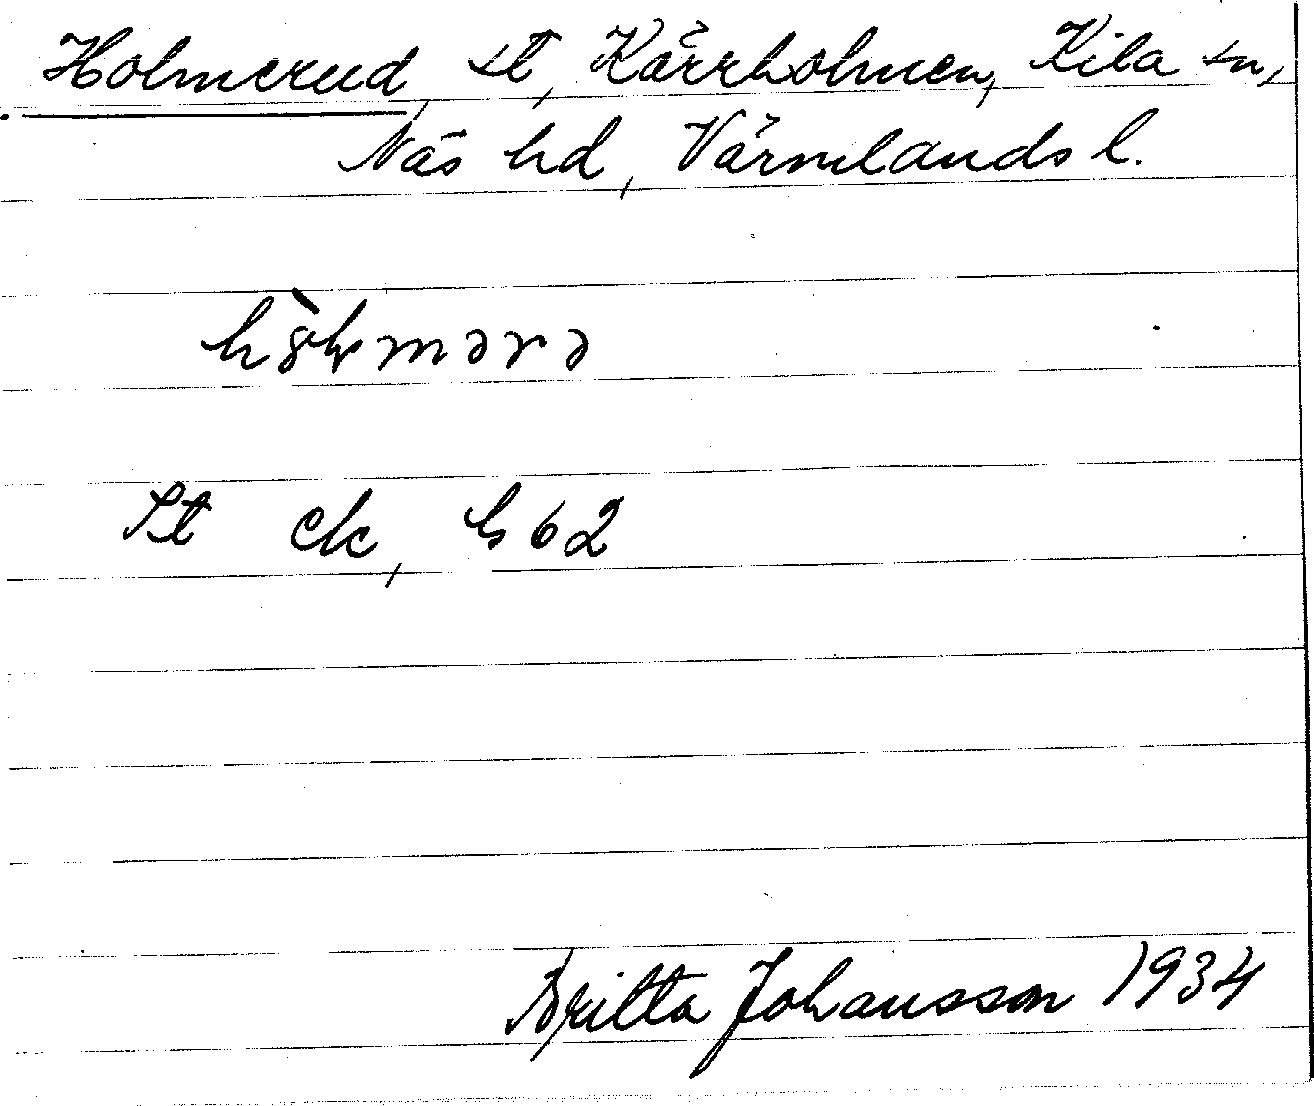 Holmerud, st, Kärrholmen, Kila sn,
Näs hd, Värmlands l.
St ek, b 62
Britta Johansson 1934